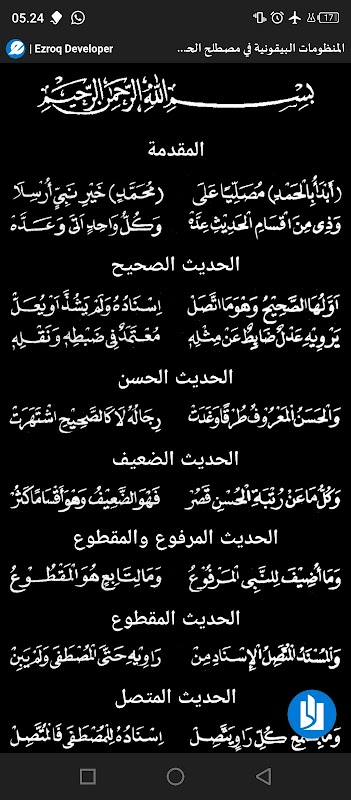 05.24
17
| Ezroq Developer
المنظومات البيقونية في مصطلح الحـ...
بِسْمِ اللهِ الرَّحْمٰنِ الرَّحِيْمِ
المقدمة
(أَبْدَأُ بِالْحَمْدِ) مُصَلِّيًا عَلَى (مُحَمَّدٍ) خَيْرِ نَبِيٍّ أُرْسِلَا
وَذِي مِنَ اقْسَامِ الْحَدِيْثِ عِدَّهْ وَكُلُّ وَاحِدٍ أَتَى وَعَدَّهْ
الحديث الصحيح
أَوَّلُهَا الصَّحِيْحُ وَهُوَ مَا اتَّصَلْ إِسْنَادُهُ وَلَمْ يَشُذَّ أَوْ يُعَلْ
يَرْوِيْهِ عَدْلٌ ضَابِطٌ عَنْ مِثْلِهِ مُعْتَمَدٌ فِي ضَبْطِهِ وَنَقْلِهِ
الحديث الحسن
وَالْحَسَنُ الْمَعْرُوْفُ طُرْقًا وَغَدَتْ رِجَالُهُ لَا كَالصَّحِيْحِ اشْتَهَرَتْ
الحديث الضعيف
وَكُلُّ مَا عَنْ رُتْبَةِ الْحُسْنِ قَصُرْ فَهُوَ الضَّعِيْفُ وَهُوَ أَقْسَامًا كَثُرْ
الحديث المرفوع والمقطوع
وَمَا أُضِيْفَ لِلنَّبِي الْمَرْفُوْعُ وَمَا لِتَابِعٍ هُوَ الْمَقْطُوْعُ
الحديث المقطوع
وَالْمُسْنَدُ الْمُتَّصِلُ الْإِسْنَادِ مِنْ رَاوِيْهِ حَتَّى الْمُصْطَفَى وَلَمْ يَبِنْ
الحديث المتصل
وَمَا بِسَمْعِ كُلِّ رَاوٍ يَتَّصِلْ إِسْنَادُهُ لِلْمُصْطَفَى فَالْمُتَّصِلْ